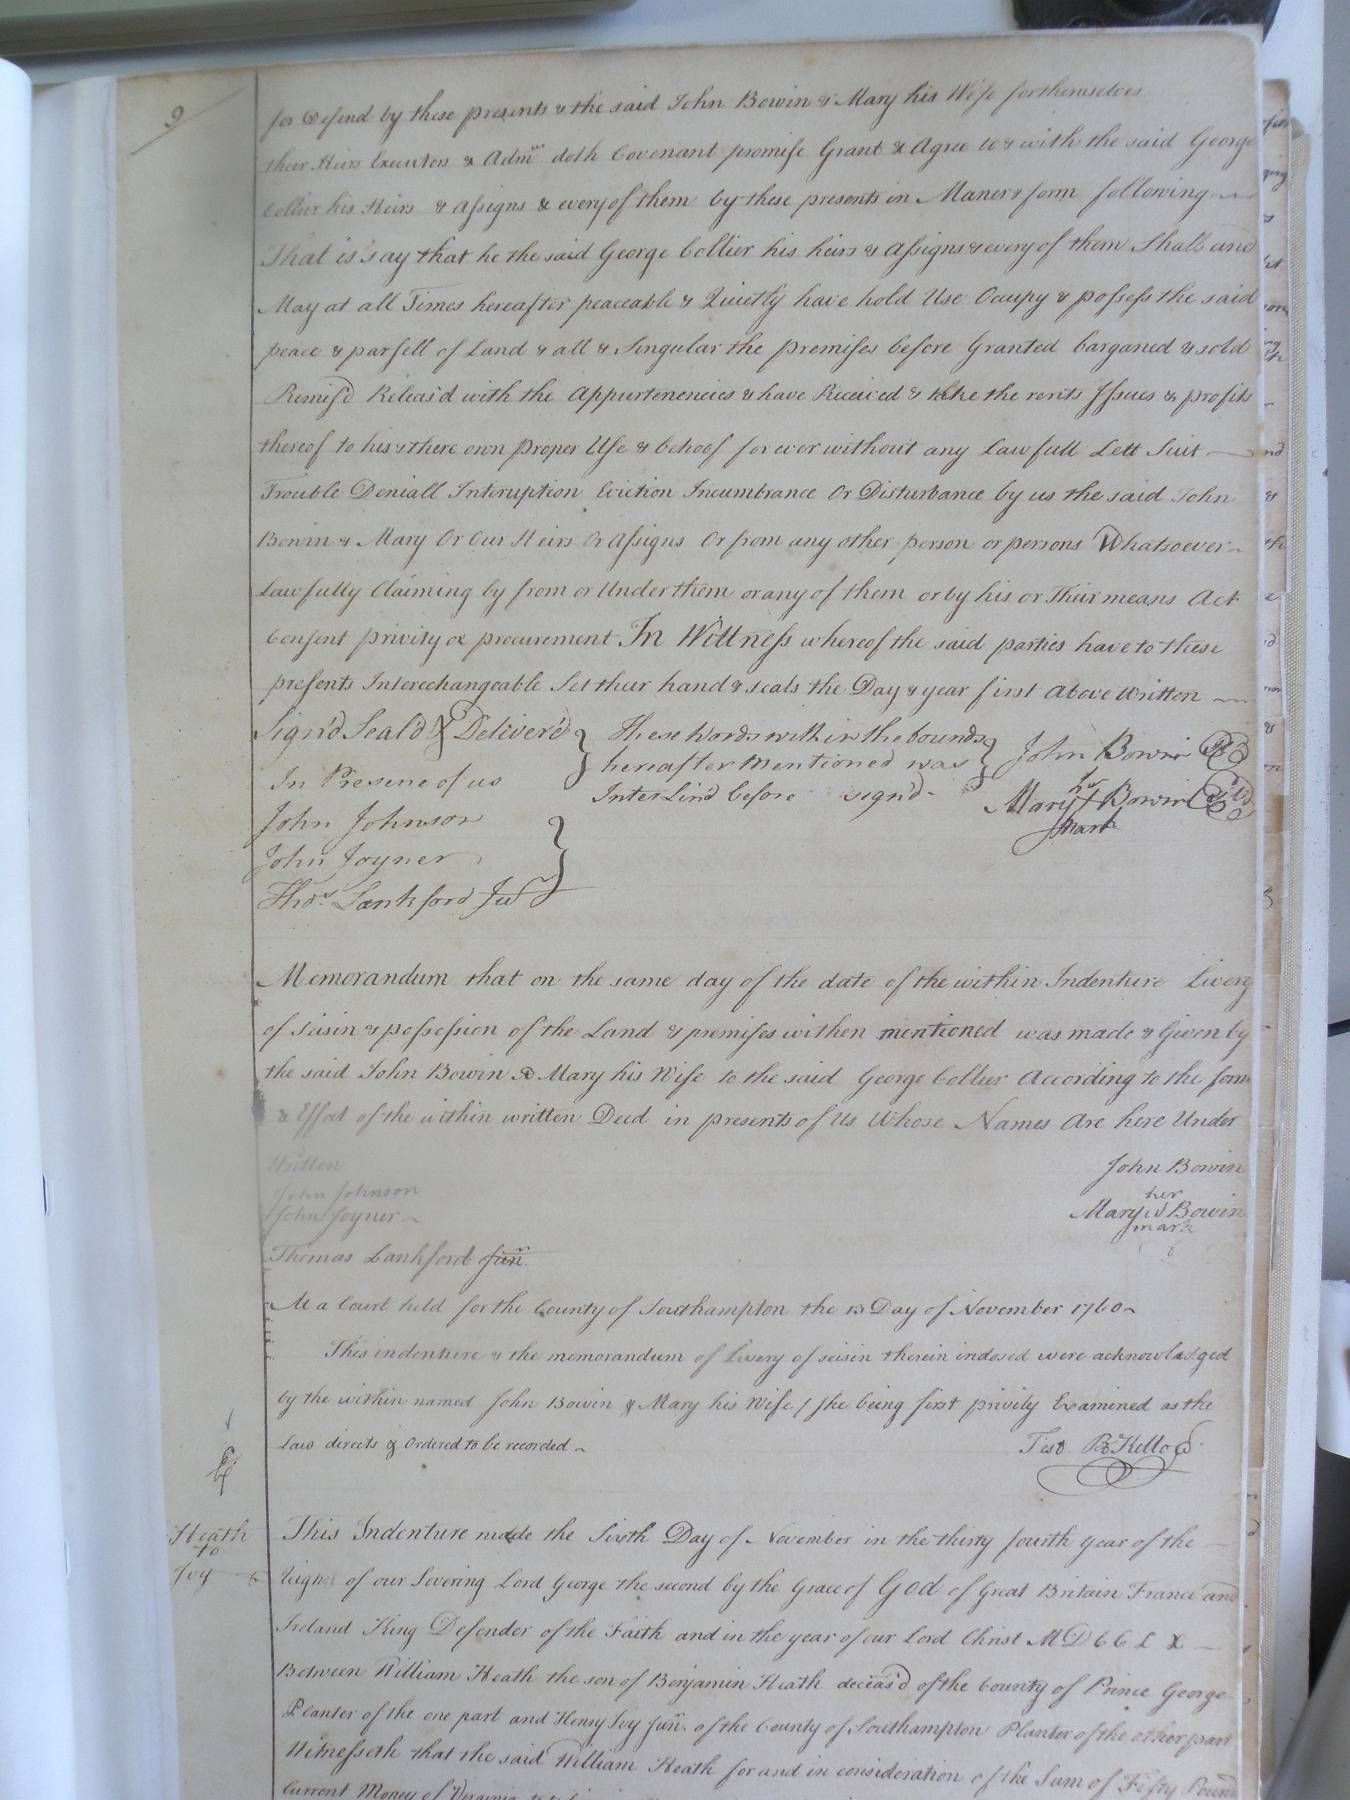 9
for Defend by these presents & the said John Bowin & Mary his Wife for themselves
their Heirs Executors & Admrs doth Covenant promise Grant & Agree to & with the said George
Collier his Heirs & Assigns & every of them by these presents in Maner & form following
That is say that he the said George Collier his heirs & Assigns & every of them Shall and
May at all Times hereafter peaceable & Quietly have hold Use Occupy & possess the said
peace & parsell of Land & all & Singular the premises before Granted barganed & sold
Remis'd Releas'd with the Appurtenencies & have Received & take the rents Issues & profits
thereof to his & there own proper Use & behoof for ever without any Lawfull Lett Suit
Trouble Deniall Interuption Eviction Incumbrance Or Disturbance by us the said John
Bowin & Mary Or Our Heirs Or Assigns Or from any other person or persons Whatsoever
Lawfully Claiming by from or Under them or any of them or by his or Their means Act
Consent privity or procurement In Wittness whereof the said parties have to these
presents Interechangeable Set their hand & seals the Day & year first Above Written
Sign'd Seal'd & Deliver'd
In Presene of us
These Words with in the bounds
hereafter Mentioned was
Inter Lin'd before sign'd
John Bowin
her
Mary Bowin
mark
John Johnson
John Joyner
Thos. Lankford Junr
Memorandum that on the same day of the date of the within Indenture Livery
of Seisin & possession of the Land & premises withen mentioned was made & Given by
the said John Bowin & Mary his Wife to the said George Collier According to the form
& Effect of the within written Deed in presents of Us Whose Names Are here Under
Written
John Bowin
John Johnson
John Joyner
her
Mary Bowin
mark
Thomas Lankford Junr.
At a Court held for the County of Southampton the 13 Day of November 1760
This indenture & the memorandum of Livery of seisin therein indosed were acknowladged
by the within named John Bowin & Mary his Wife / she being first privily Examined as the
Law directs & Ordered to be recorded
Test
Heath
to
Ivy
This Indenture made the Sixth Day of November in the thirty fourth year of the
Reign of our Sovering Lord George the second by the Grace of God of Great Britain France and
Ireland King Defender of the Faith and in the year of our Lord Christ MDCCLX
Between William Heath the son of Benjamin Heath deceas'd of the County of Prince George
Planter of the one part and Henry Ivy Junr. of the County of Southampton Planter of the other part
Witnesseth that the said William Heath for and in consideration of the Sum of Fifty Pound
Current Money of Virginia